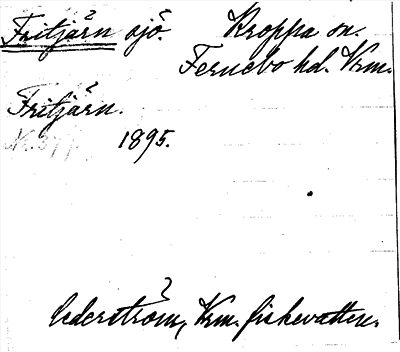 Fritjärn sjö. Kroppa sn.
Fernebo hd. Vrm.
Fritjärn.
1895.
Cederström, Vrm. fiskevatten.